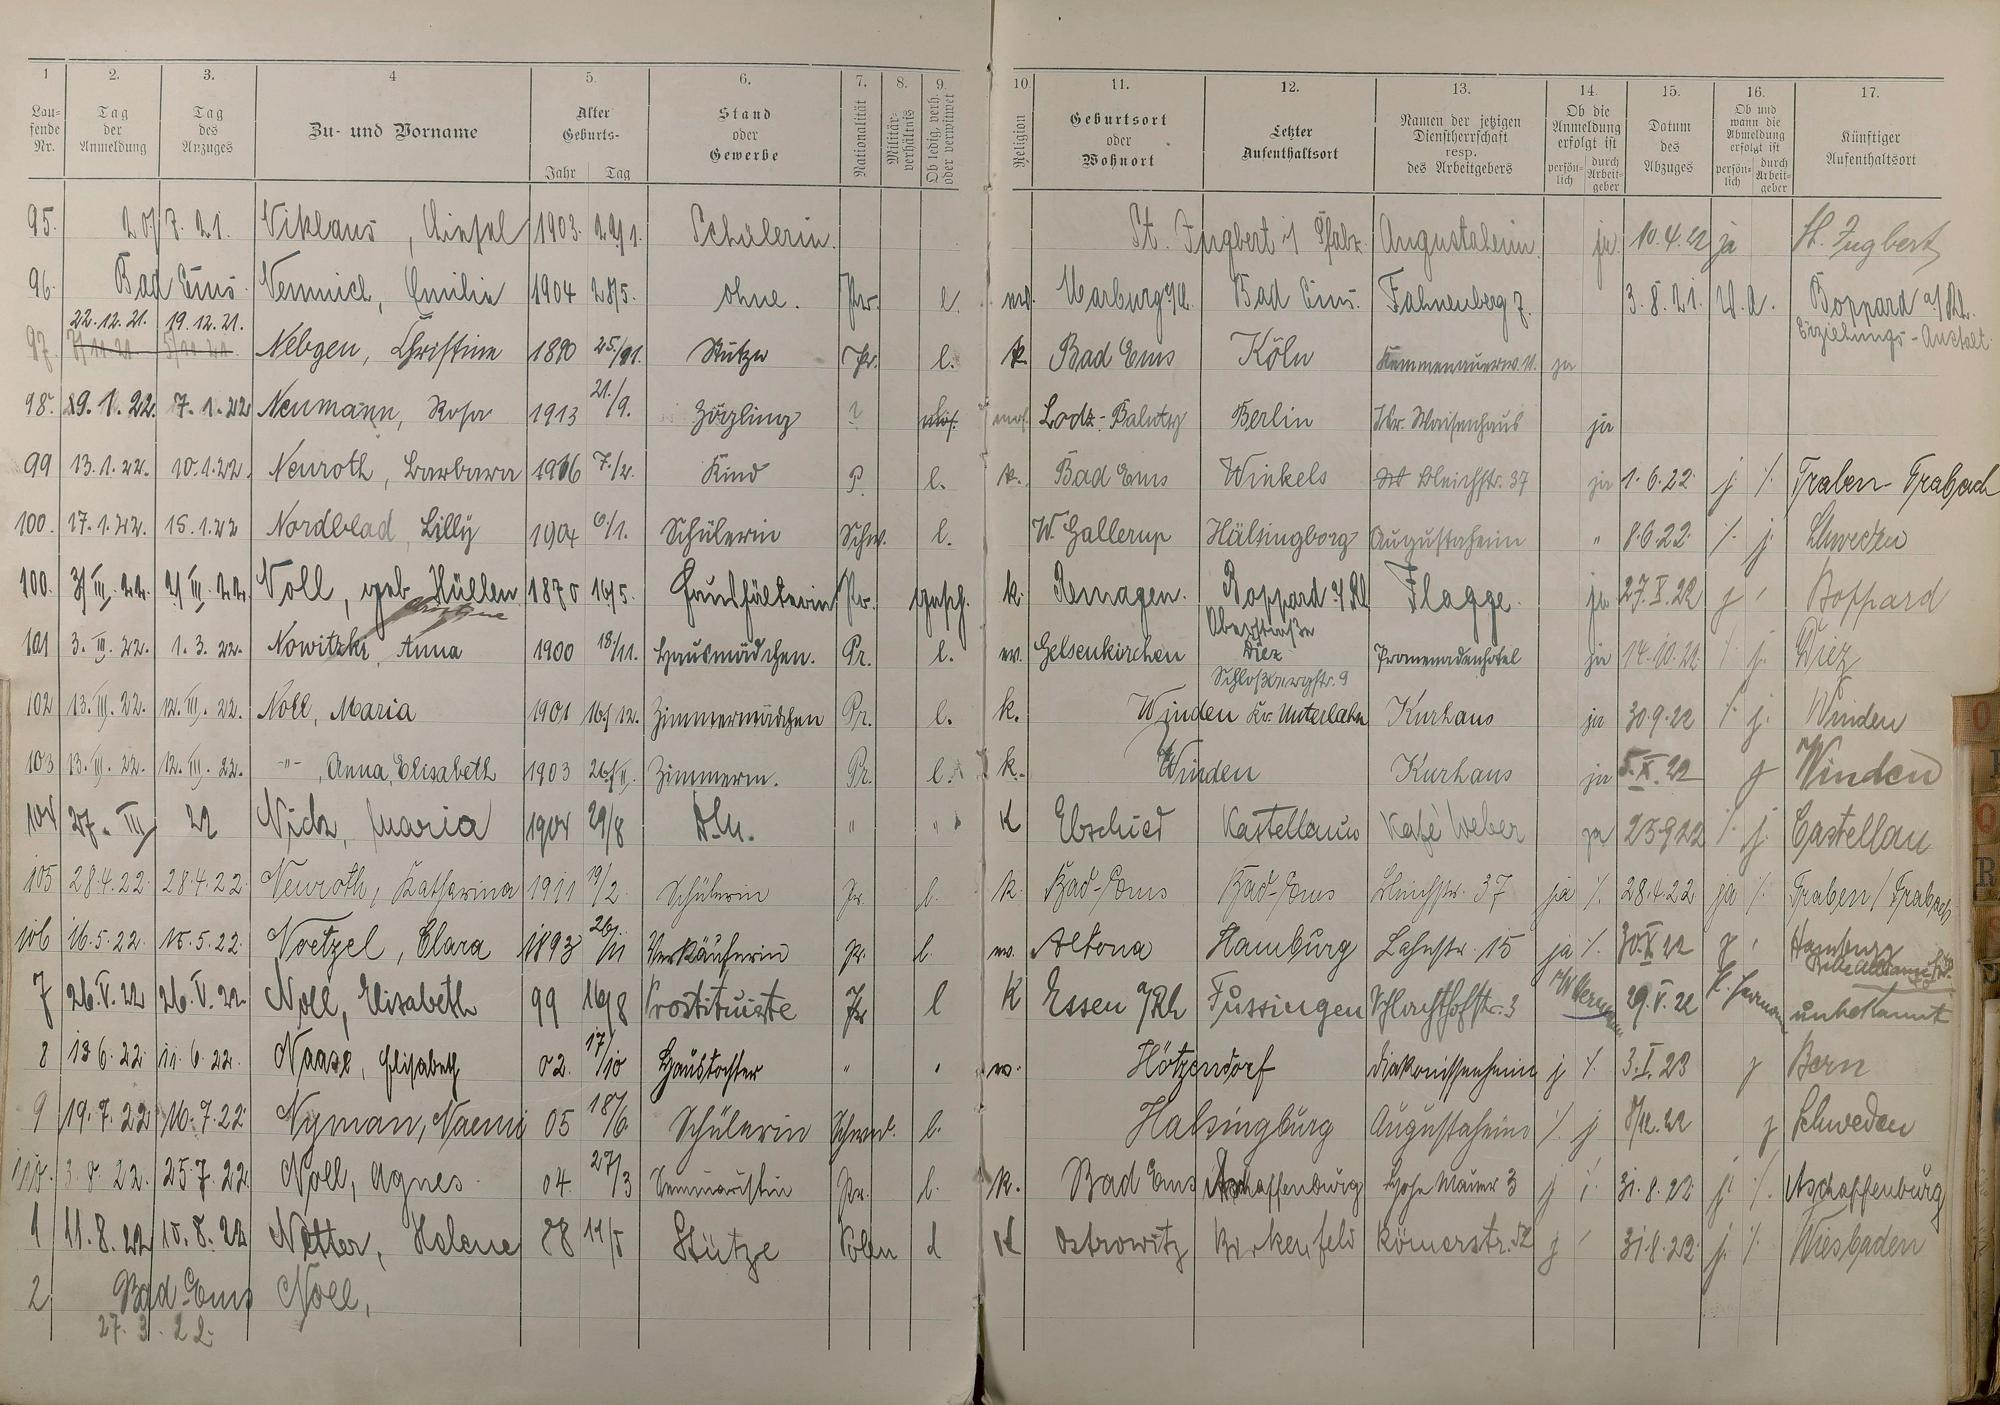 1 2. 3. 4 5. 6. 7. 8. 9. 10. 11. 12. 13. 14. 15. 16. 17.
Lau-
fende
Nr.
Tag
der
Anmeldung
Tag
des
Anzuges
Zu- und Vorname
Alter
Geburts-
Jahr Tag
Stand
oder
Gewerbe
Nationalität
Militär-
verhältnis
Ob ledig, verh.
oder verwitwet
Religion
Geburtsort
oder
Wohnort
Letzter
Aufenthaltsort
Namen der jetzigen
Dienstherrschaft
resp.
des Arbeitgebers
Ob die
Anmeldung
erfolgt ist
persön-
lich
durch
Arbeit-
geber
Datum
des
Abzuges
Ob und
wann die
Abmeldung
erfolgt ist
persön-
lich
durch
Arbeit-
geber
Künftiger
Aufenthaltsort
95. 20/7. 21. Niklaus, 1903. 29/1. Schülerin. St. Ingbert i/ Pfalz Augustaheim ja 10.4.22 ja St. Ingbert
96. Bad Ems Nemnich, Emilie 1904 28/5. ohne. Pr. l. Marburg Bad Ems. Fahnenberg 7. 3.8.21. Boppard a/Rh.
Erziehungs-Anstalt
22.12.21. 19.12.21.
97. Nebgen, Christine 1890 Stütze Pr. l. k. Bad Ems Köln Kemmenauerw. ja
98. 9.1.22. 7.1.22 Neumann, Rosa 1913 21./9. Zögling ? mos. Lodz-Baluty Berlin Isr. Waisenhaus ja
99 13.1.22. 10.1.22. Neuroth, Barbara 1916 7./2. Kind P. l. k. Bad Ems Winkels Bleichstr. 37 ja 1.6.22 j. /. Traben-Trabach
100. 17.1.22. 15.1.22 Nordblad, Lilly 1904 6/1. Schülerin Schw. l. W. Gallerup Hälsingborg Augustaheim " 8.6.22 /. j. Schweden
100. 3/III.22. 2/III.22. Noll, geb. Hüllen 1870 16/5. Haushälterin Pr. gesch. k. Remagen. Boppard a/Rh Flagge. ja 27.X.22 j ' Boppard
Christine
Oberstraße
101 3.III.22. 1.3.22. Nowitzki, Anna 1900 18./11. Hausmädchen. Pr. l. ev. Gelsenkirchen Diez Promenadenhotel ja 14.10.22 /. j. Diez
Schloßbergstr. 9
102 13.III.22. 12.III.22. Noll, Maria 1901 16./12. Zimmermädchen Pr. l. k. Winden Kr. Unterlahn Kurhaus ja 30.9.22 /. j. Winden
103 13.III.22. 12.III.22. -"-, Anna, Elisabeth 1903 26./II. Zimmerm. Pr. l. k. Winden Kurhaus ja 5.X.22 j Winden
104 27. III 22 Nick, Maria 1904 29/8 D.M. " " K Ebschied Kastellaun Kafé Weber ja 23.9.22 /. j. Castellau
105 28.4.22. 28.4.22. Neuroth, Katharina 1911 19/2. Schülerin Pr. l. k. Bad-Ems Bad-Ems Bleichstr. 37 ja /. 28.4.22 ja /. Traben/Trabach
106 16.5.22. 15.5.22. Noetzel, Clara 1893 26/11 Verkäuferin Pr. l. ev. Altona Hamburg Lahnstr. 15 ja /. 30.X.22 j ' Hamburg
7 26.V.22 26.V.22. Noll, Elisabeth 99 16/8 Prostituierte Pr l k Essen a/Rh Fussingen Schlachthofstr. 3 29.V.22 unbekannt
8 13.6.22 11.6.22. Naase, Elisabeth 02. 17/10 Haustochter " " ev. Hötzendorf Diakonissenheim j /. 3.I.23 j Bern
9 19.7.22 16.7.22 Nyman, Naemi 05 18/6. Schülerin Schwed. l. Halsingburg Augustaheim /. j 8/12.22 j Schweden
110. 3.8.22. 25.7.22 Noll, Agnes 04. 27/3 Seminaristin Pr. l. k. Bad Ems Aschaffenburg Hohe Mauer 3 j /. 31.8.22 j. /. Aschaffenburg
1 11.8.22 10.8.22 Netter, Helene 88 14/5 Stütze Polen K Ostrowitz Birkenfeld Römerstr. 31.8.22 j. /. Wiesbaden
2 Bad Ems Noll,
27. 3. 22.